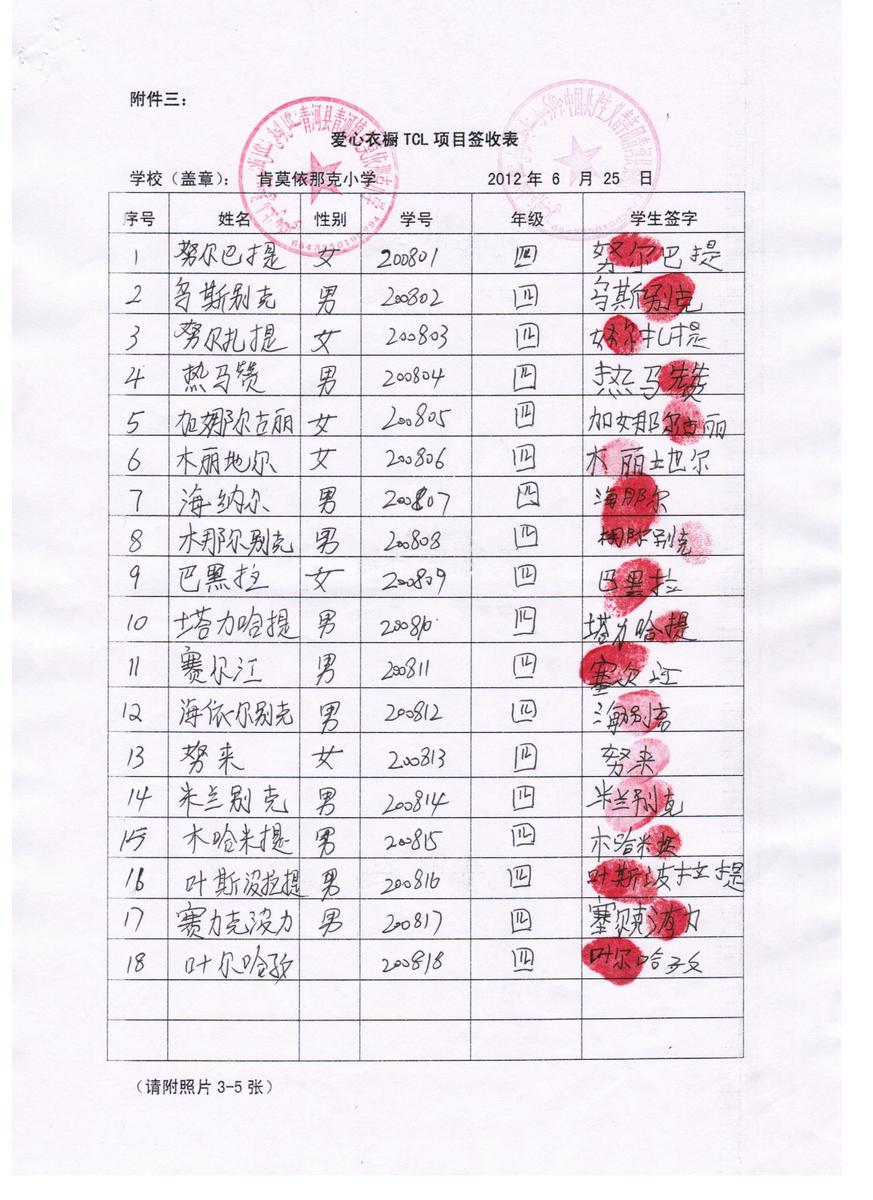 附件三：
爱心衣橱 TCL 项目签收表
学校（盖章）： 肯莫依那克小学 2012 年 6 月 25 日
序号 姓名 性别 学号 年级 学生签字
1 努尔巴提 女 200801 四 努尔巴提
2 乌斯别克 男 200802 四 乌斯别克
3 努尔扎提 女 200803 四 努尔扎提
4 热马赞 男 200804 四 热马赞
5 加娜尔古丽 女 200805 四 加娜尔古丽
6 木丽地尔 女 200806 四 木丽地尔
7 海纳尔 男 200807 四 海那尔
8 木那尔别克 男 200808 四 别克
9 巴黑拉 女 200809 四 巴黑拉
10 塔力哈提 男 200810 四 塔力哈提
11 赛尔江 男 200811 四 江
12 海依尔别克 男 200812 四 海别克
13 努来 女 200813 四 努来
14 米兰别克 男 200814 四 米兰别克
15 木哈米提 男 200815 四 木哈米提
16 叶斯波拉提 男 200816 四 叶斯波拉提
17 赛力克波力 男 200817 四 波力
18 叶尔哈孜 200818 四 叶尔哈孜
（请附照片 3-5 张）